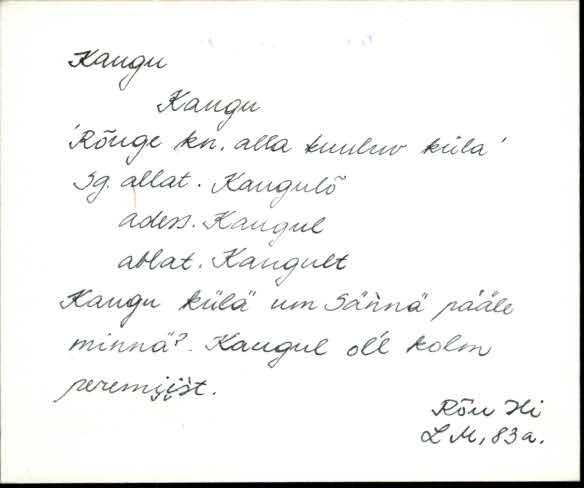 Kangu
Kangu
'Rõuge kn. alla kuuluv küla'
Sg. allat. Kangulõ
adess. Kangul
ablat. Kangult
Kangu külä um Säńnä pääle
minnä?. Kangul oĺl kolm
peremijist.
Rõu Hi
L M, 83 a.